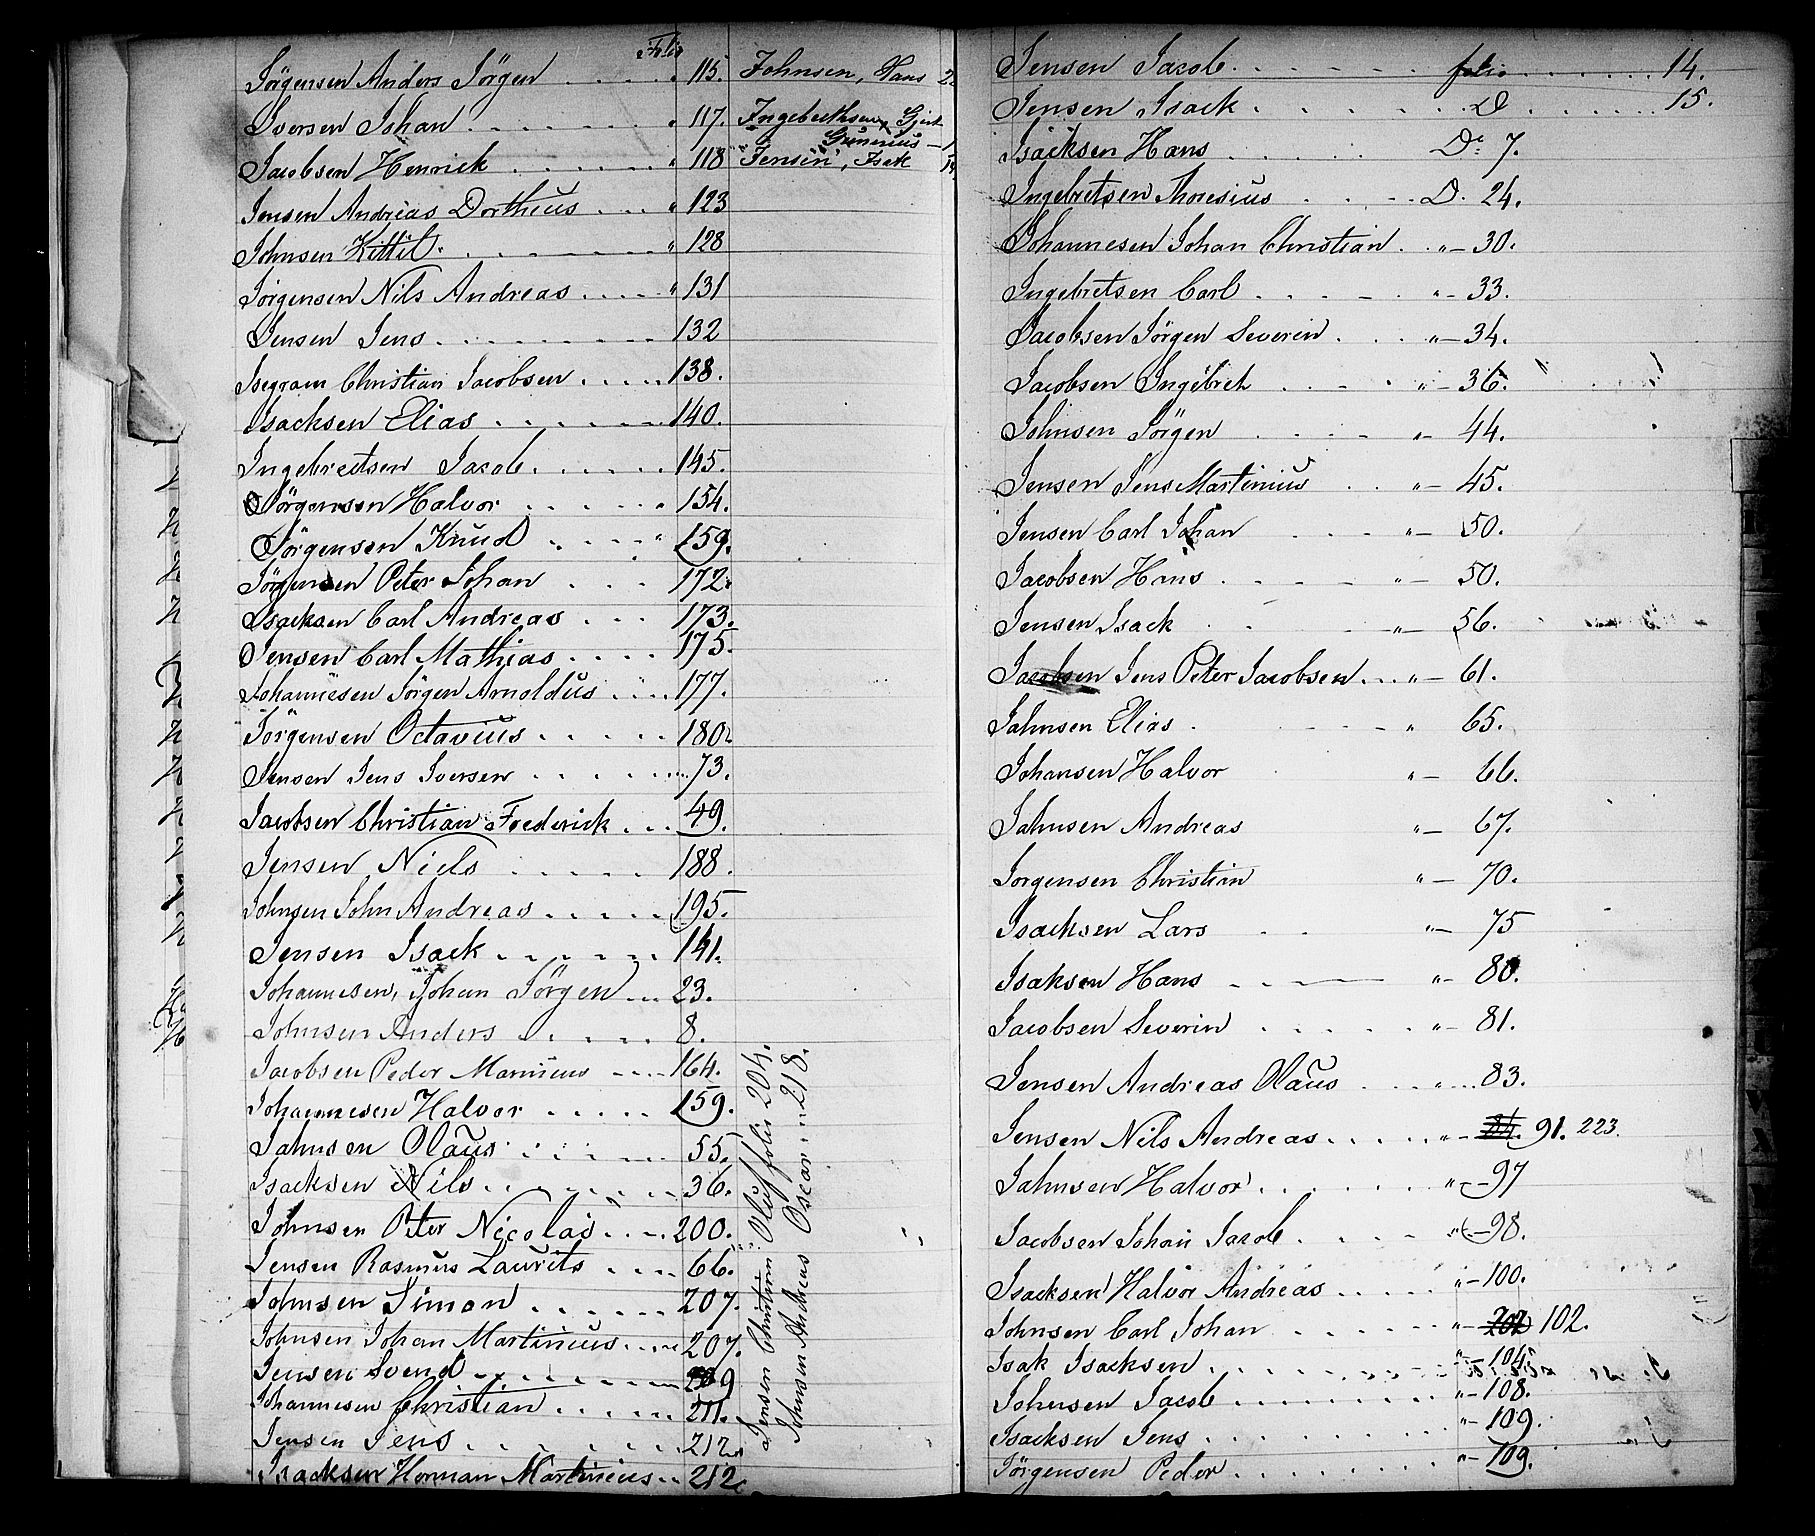 Folio
Jörgensen Anders Jörgen . . . . . " 115.
Iversen Johan . . . . . . . " 117.
Jacobsen Henrick . . . . . . " 118
Jensen Andreas Dortheus . . . " 123
Johnsen Kittil . . . . . . . " 128
Jörgensen Nils Andreas . . . . . " 131
Jensen Jens . . . . . . . . . 132
Isegram Christian Jacobsen . . . . . 138.
Isacksen Elias . . . . . . . 140.
Ingebretsen Jacob . . . . . . 145.
Jörgensen Halvor . . . . . " 154.
Jörgensen Knud . . . . " 159.
Jörgensen Peter Johan . . . 172.
Isacksen Carl Andreas . . . 173.
Jensen Carl Mathias . . . . 175.
Johannesen Jörgen Arnoldus . . . . 177.
Jörgensen Octavius . . . . . 180.
Jensen Jens Iversen . . . . . . 73.
Jacobsen Christian Frederick . . . 49.
Jensen Niels . . . . . . 188.
Johnsen John Andreas . . . . . 195.
Jensen Isack . . . . . . 141.
Johannesen, Johan Jörgen . . . 23.
Johnsen Anders . . . . . 8.
Jacobsen Peder Marinius . . . . 164.
Johannesen Halvor . . . . . 159.
Jahnsen Olaus . . . . . 55.
Isacksen Nils . . . . . . . 36.
Johnsen Peter Nicolai . . . . 200.
Jensen Rasmus Laurits . . . . 66.
Johnsen Simon . . . . . . 207.
Johnsen Johan Martinius . . . . 207.
Jensen Svend . . . . . . . 209
Johannesen Christian . . . . . . 211.
Jensen Jens . . . . . . . . 212
Isacksen Herman Martinius . . 212
Johnsen, Hans 2
Ingebrethsen Gjert
" Gunerius - 1
Jensen, Isak 1
Jensen Christian Oluf folio 204.
Johnsen Andreas Oscar " 218.
Jensen Jacob . . . . . . folio . . . . . . 14.
Jensen Isack . . . . . . . D . . . . . . 15.
Isacksen Hans . . . . . . Do 7.
Ingebretsen Thoresius . . . . D. 24.
Johannesen Johan Christian . " — 30.
Ingebretsen Carl . . . . . " — 33.
Jacobsen Jörgen Severin . . . " — 34.
Jacobsen Ingebret . . . . " — 36.
Johnsen Jörgen . . . . " — 44.
Jensen Jens Martinius . . " — 45.
Jensen Carl Johan . . . " — 50.
Jacobsen Hans . . . . " — 50.
Jensen Isack . . . " — 56.
Jens Peter Jacobsen . . . " — 61.
Jahnsen Elias . . . " 65.
Johansen Halvor " — 66.
Jahnsen Andreas " — 67.
Jorgensen Christian " — 70.
Isacksen Lars . . " — 75
Isaksen Hans . . . " — 80.
Jacobsen Severin . . . . . " — 81.
Jensen Andreas Olaus . . . . " . . . 83.
Jensen Nils Andreas . . . . . " — 84. 91. 223.
Jahnsen Halvor . . . . . " — 97
Jacobsen Johan Jacob . . . . . " — 98.
Isacksen Halvor Andreas . . . . . " — 100.
Johnsen Carl Johan . . . . . . " — 202 102.
Isak Isacksen . . . . . . . " — 104.
Johnsen Jacob . . . . . . . " — 108.
Isacksen Jens . . . . . . . . " 109.
Jörgensen Peder . . . . . . . " — 109.